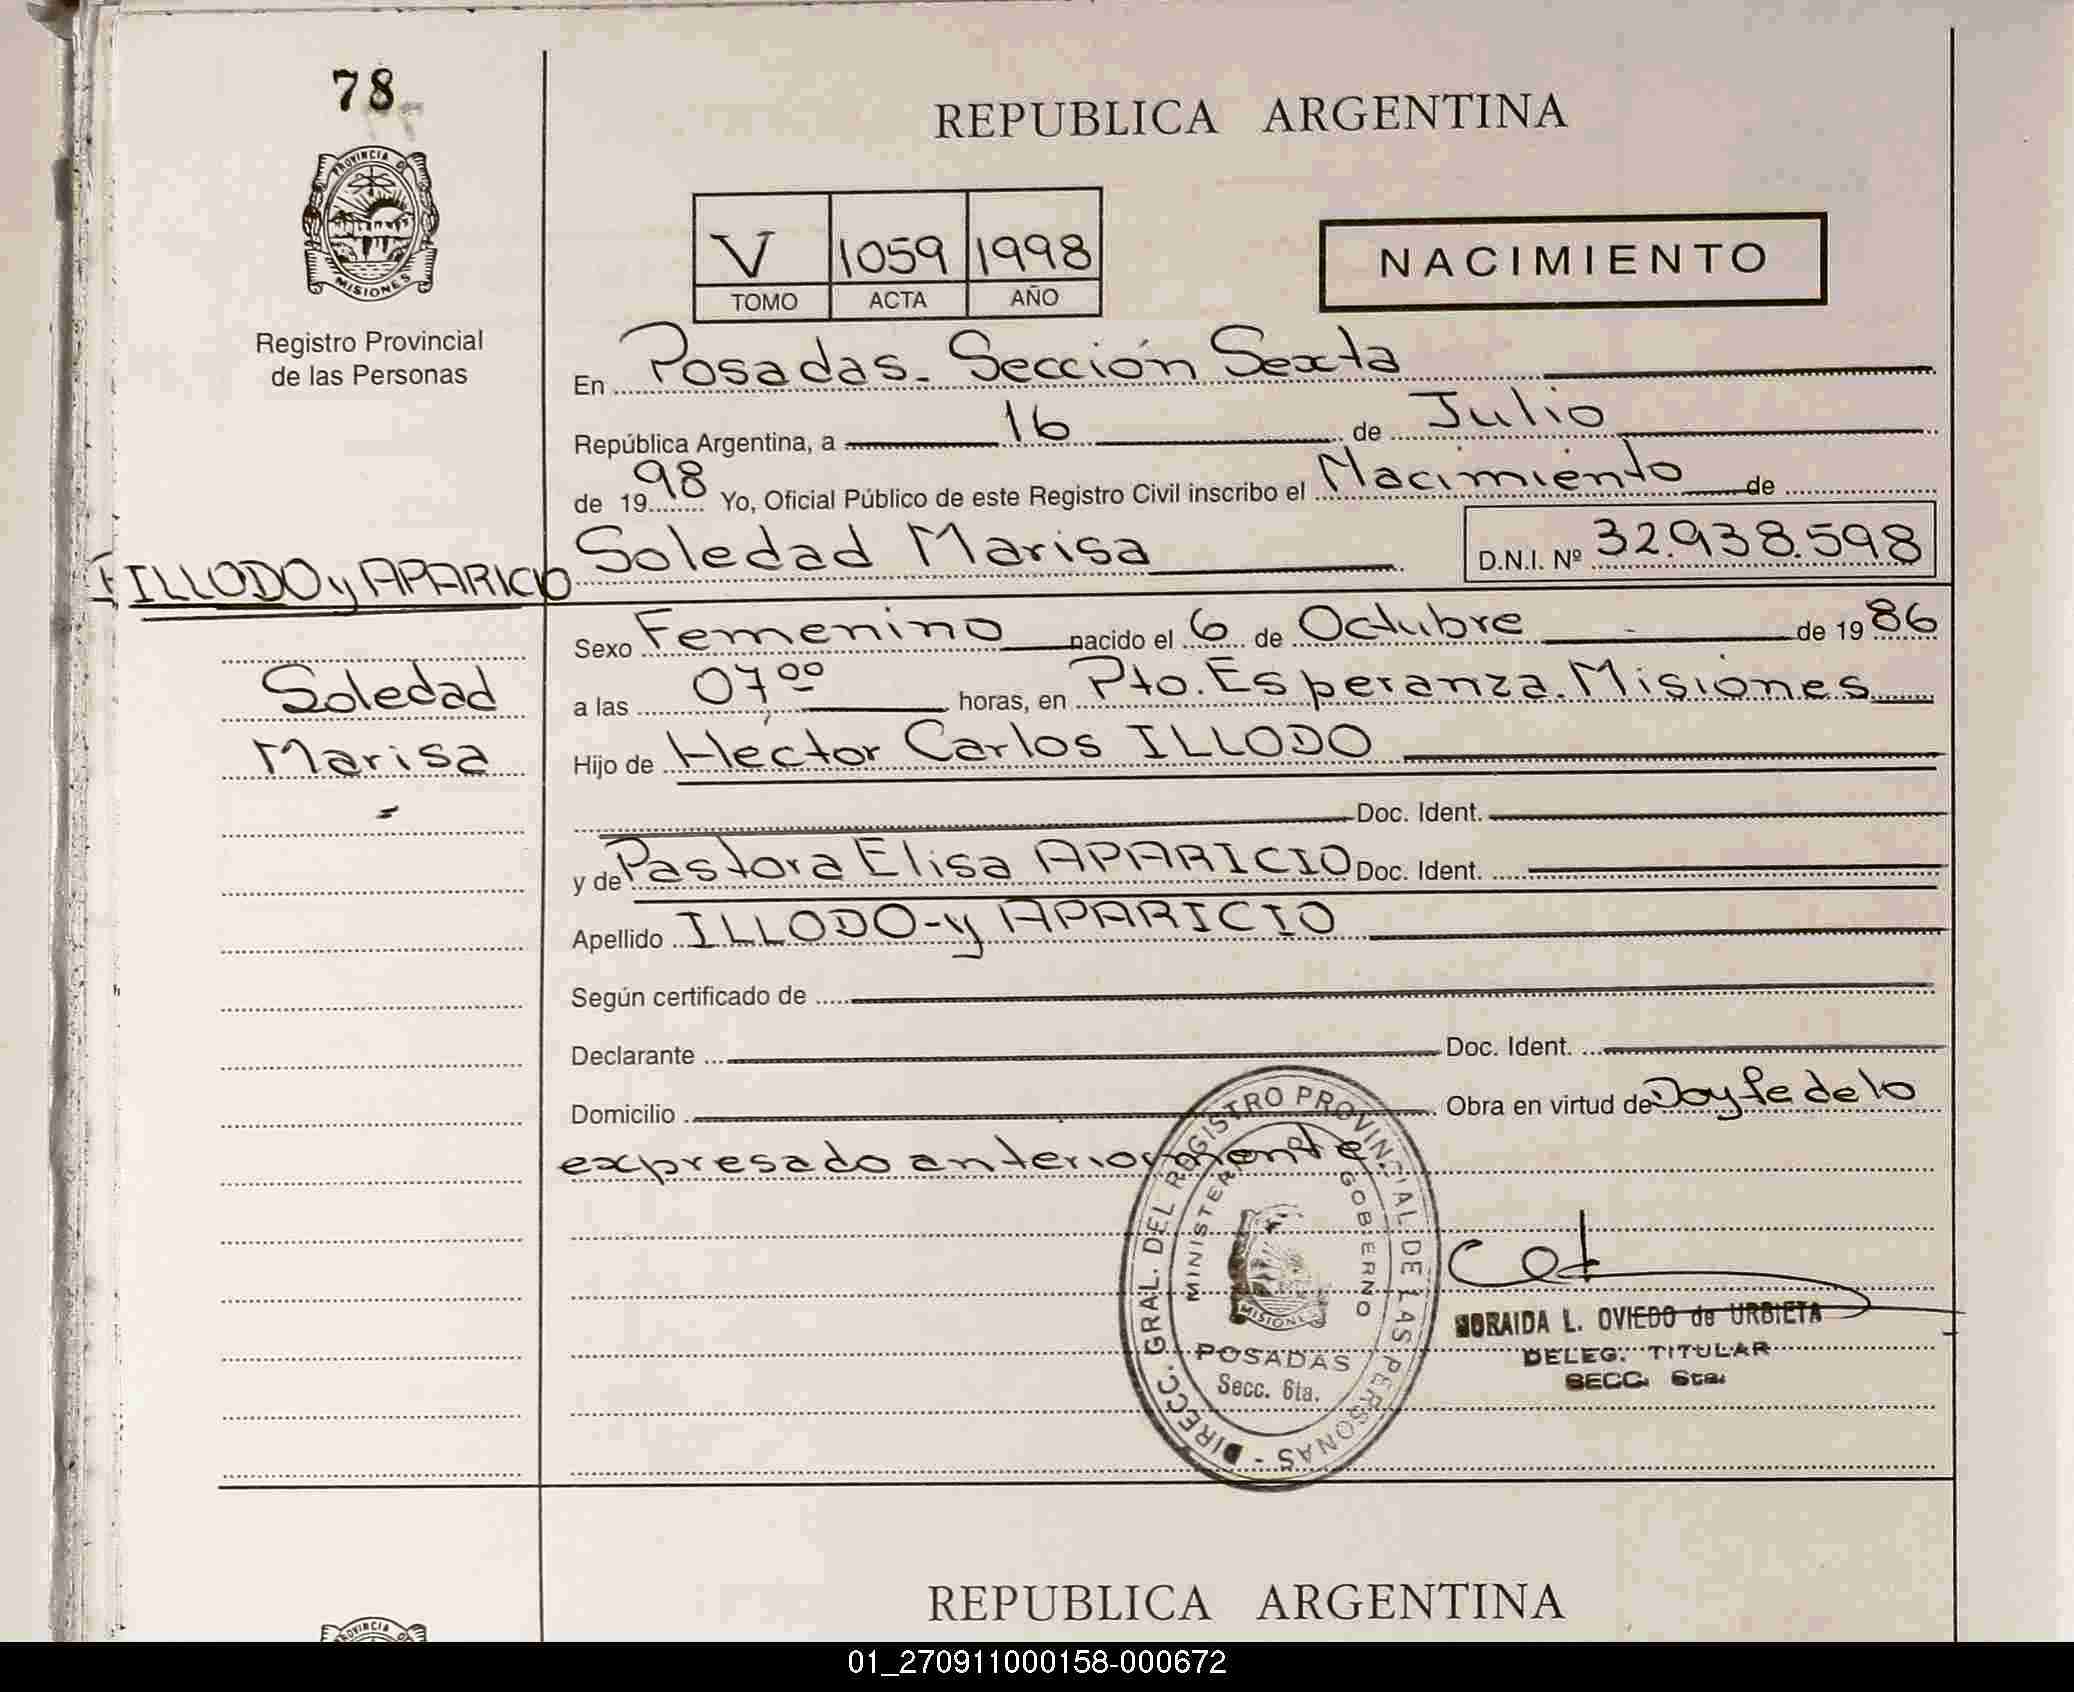 78
REPUBLICA ARGENTINA
PROVINCIA DE
MISIONES
Registro Provincial
de las Personas
V 1059 1998
TOMO ACTA AÑO
NACIMIENTO
En Posadas. Sección Sexta
República Argentina, a 16 de Julio
de 1998 Yo, Oficial Público de este Registro Civil inscribo el Nacimiento de
ILLODO y APARICIO Soledad Marisa D.N.I. Nº 32.938.598
Sexo Femenino nacido el 6 de Octubre de 1986
Soledad
a las 07 00 horas, en Pto. Esperanza. Misiones
Marisa
Hijo de Héctor Carlos ILLODO
Doc. Ident.
y de Pastora Elisa APARICIO Doc. Ident.
Apellido ILLODO - y APARICIO
Según certificado de
Declarante Doc. Ident.
Domicilio Obra en virtud de Doy fe de lo
expresado anteriormente.
DIRECC. GRAL. DEL REGISTRO PROVINCIAL DE LAS PERSONAS -
MINISTERIO GOBIERNO
MISIONES
POSADAS
Secc. 6ta.
NORAIDA L. OVIEDO de URBIETA
DELEG. TITULAR
SECC. 6ta.
REPUBLICA ARGENTINA
01_270911000158-000672